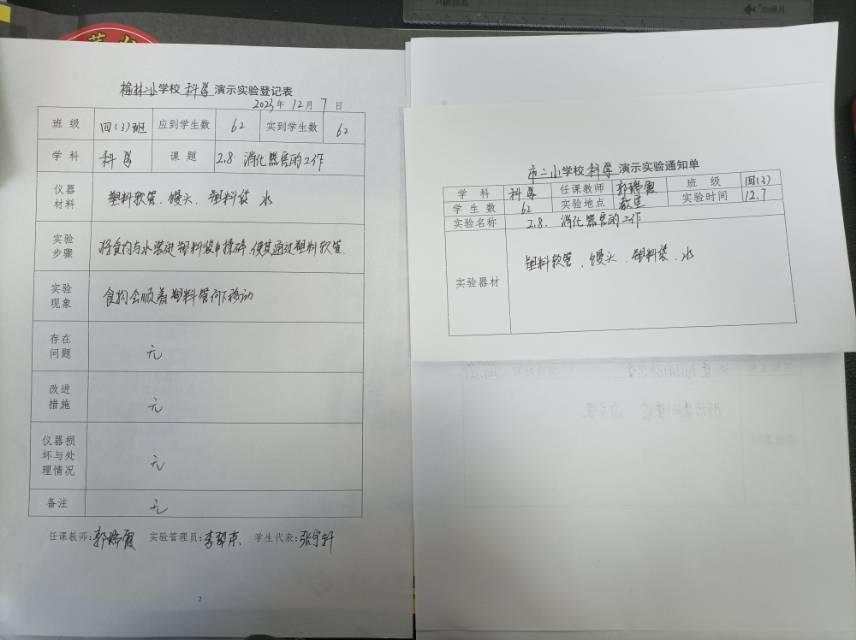 榆林小学校科学演示实验登记表
2023年12月7日
班 级 四(3)班 应到学生数 62 实到学生数 62
学 科 科学 课 题 2.8 消化器官的工作
仪器材料 塑料软管、馒头、塑料袋 水
实验步骤 将食物与水装进塑料袋中揉碎,使其通过塑料软管.
实验现象 食物会顺着塑料管向下移动
存在问题 无
改进措施 无
仪器损坏与处理情况 无
备注 无
任课教师: 实验管理员: 学生代表:
2
市二小学校科学演示实验通知单
学 科 科学 任课教师 班 级 四(3)
学 生 数 62 实验地点 教室 实验时间 12.7
实验名称 2.8. 消化器官的工作
实验器材 塑料软管、馒头、塑料袋、水